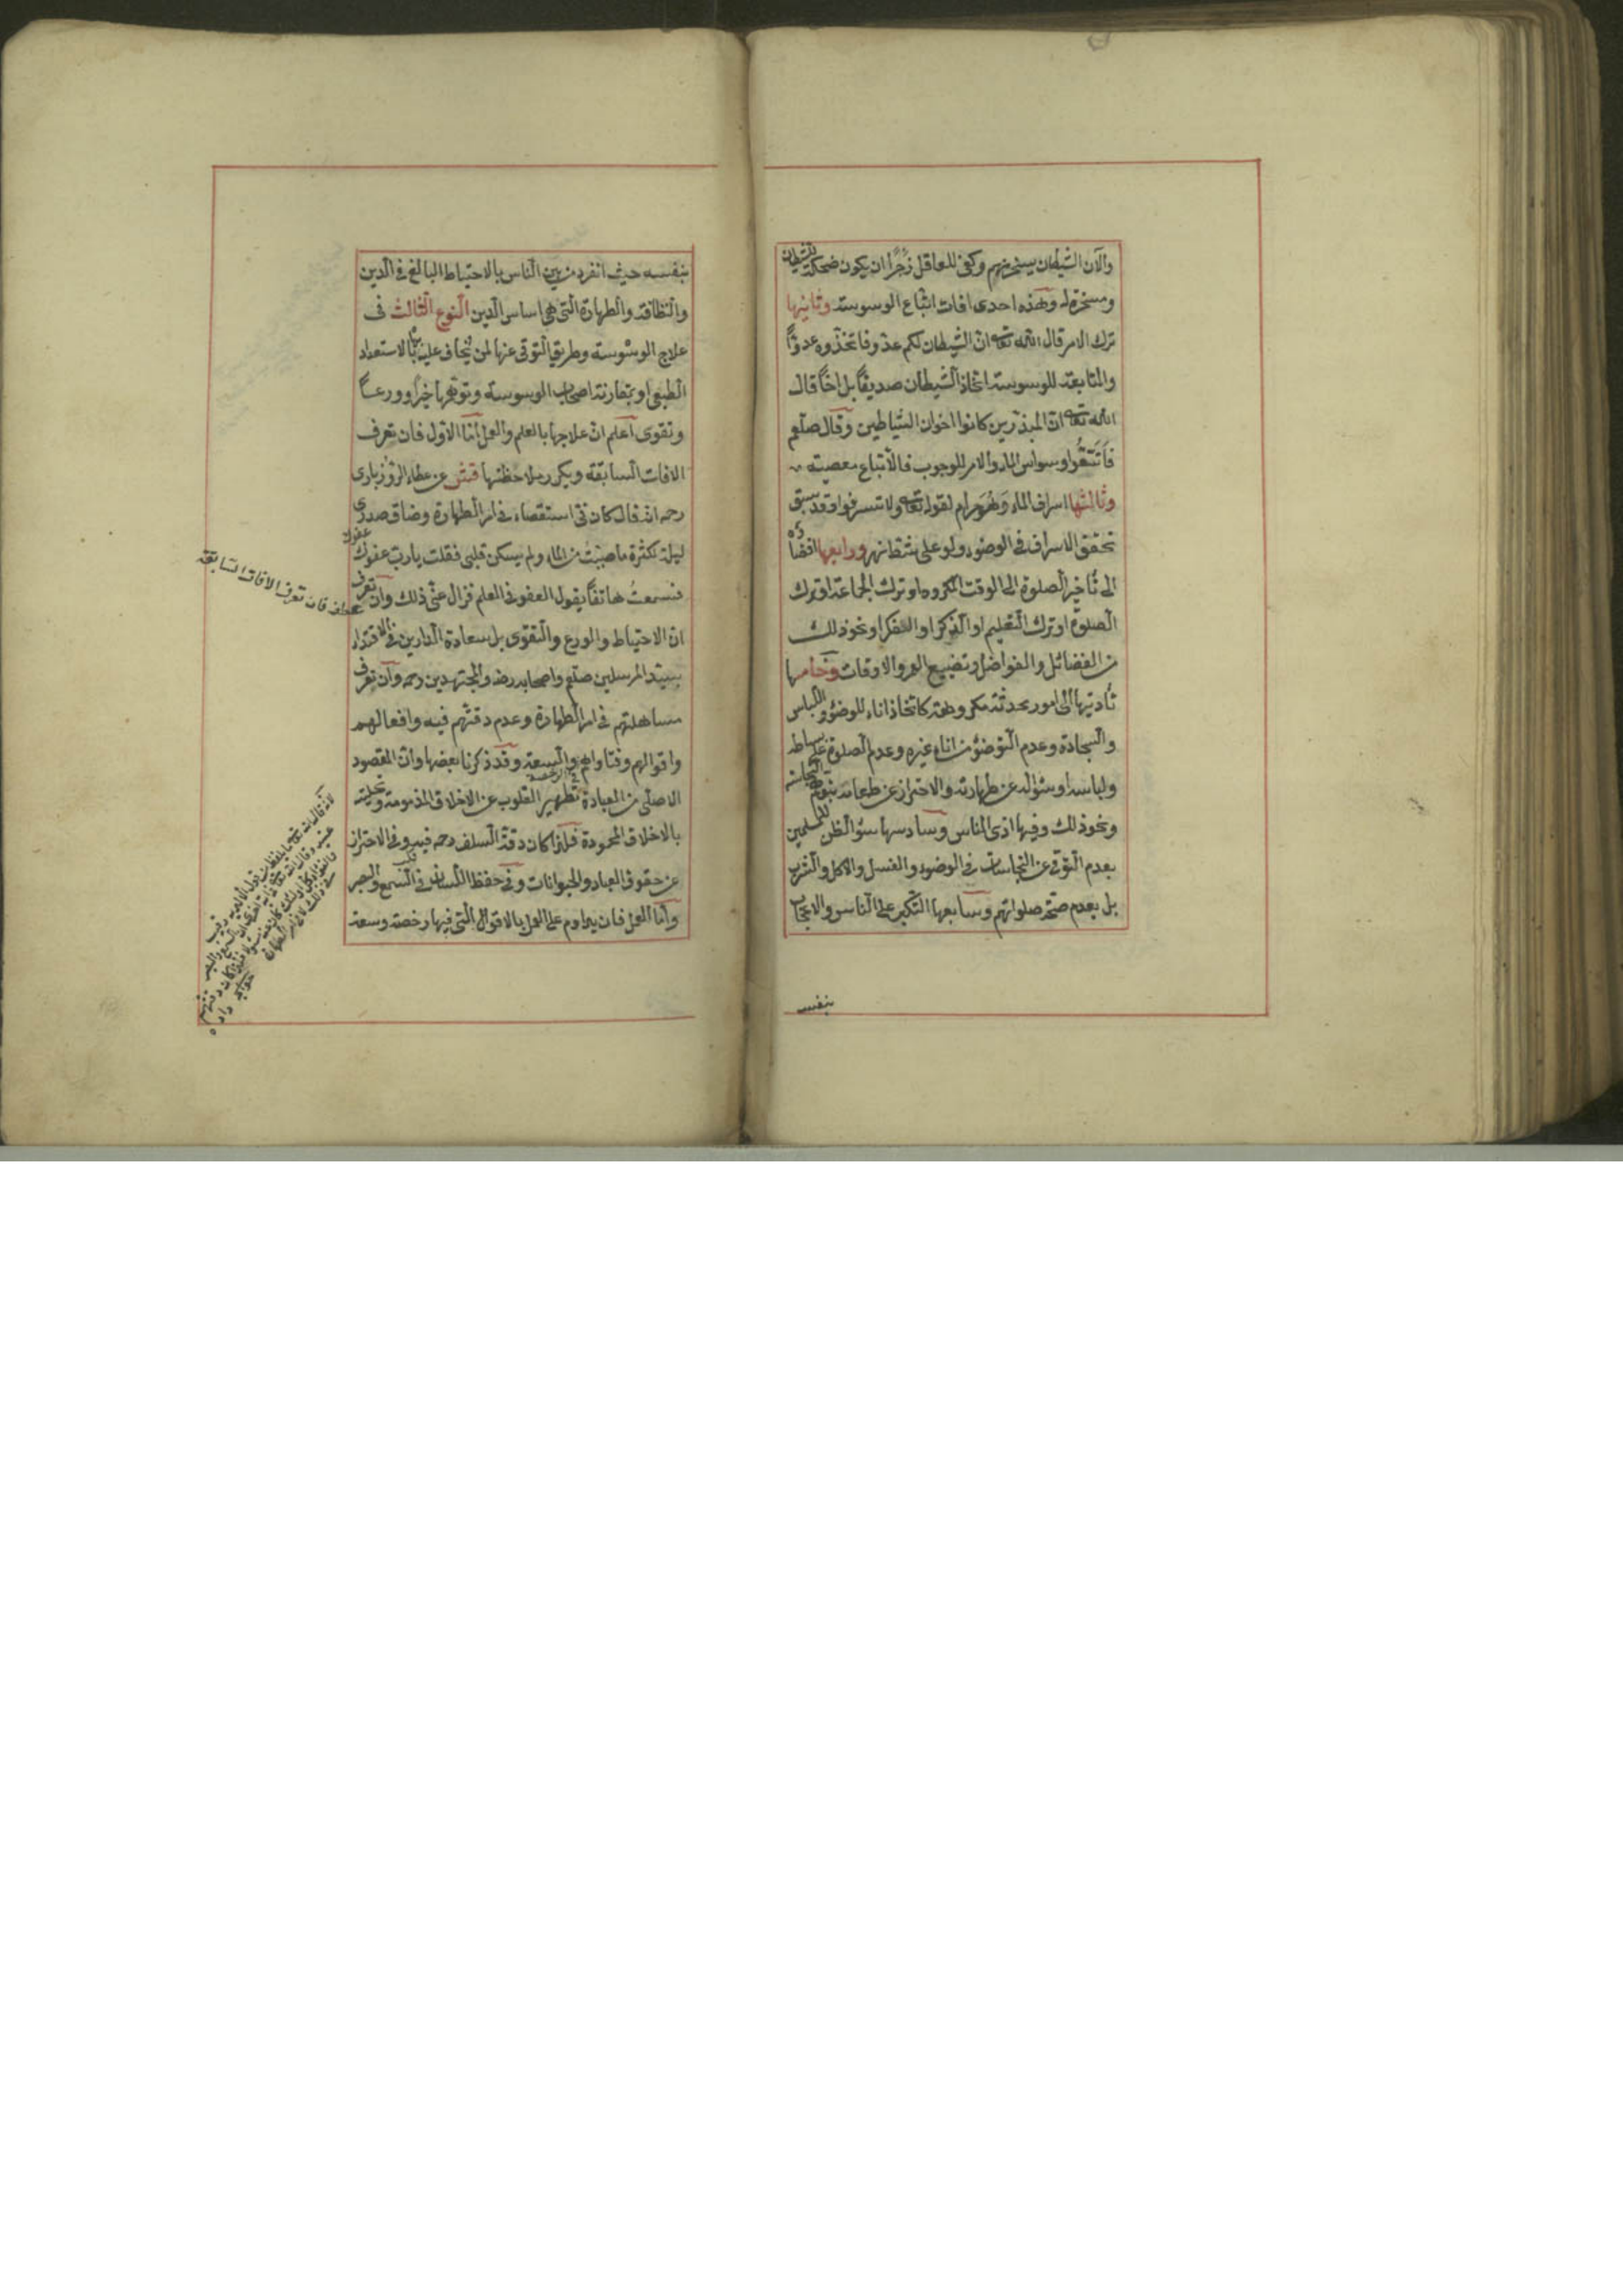 والآن الشيطان يسخر منهم وكفى للعاقل زجرا ان يكون ضحكة للشيطان
ومسخرة له وهذه احدى افات اتباع الوسوسة وثانيها
ترك الامر قال الله تعالى ان الشيطان لكم عدو فاتخذوه عدوّاً
والمتابعة للوسوسة اتخاذ الشيطان صديقاً بل اخاً قال
الله تعالى ان المبذرين كانوا اخوان الشياطين وقال صلعم
فاتقوا وسواس الماء والامر للوجوب فالاتباع معصية
وثالثها اسراف الماء وهو حرام لقوله تعالى ولا تسرفوا وقد سبق
تحقق الاسراف في الوضوء ولو على شط نهر ورابعها افضاؤه
الى تأخير الصلوة الى الوقت المكروه او ترك الجماعة او ترك
الصلوة او ترك التعليم او الذكر او الفكر او نحو ذلك
من الفضائل والفواضل وتضييع العمر والاوقات وخامسها
تأديتها الى امور محدثة مكروهة كاتخاذ اناء للوضوء واللباس
والسجادة وعدم التوضؤ من اناء غيره وعدم الصلوة على بساطه
ولباسه او سؤاله عن طهارته والاحتراز عن طعامه بتوهم النجاسة
ونحو ذلك وفيها اذى الناس وسادسها سوء الظن للمسلمين
بعدم التوقى عن النجاسات في الوضوء والغسل والاكل والشرب
بل بعدم صحة صلواتهم وسابعها التكبر على الناس والاعجاب
بنفسه
بنفسه حيث انفرد من بين الناس بالاحتياط البالغ في الدين
والنظافة والطهارة التى هي اساس الدين النوع الثالث في
علاج الوسوسة وطريق التوقى عنها لمن يخاف عليه بالاستعداد
الطبعى او بمقارنة اصحاب الوسوسة وتوهمها خيراً وورعاً
وتقوى اعلم ان علاجها بالعلم والعمل اما الاول فان تعرف
الافات السابقة ويكرر ملاحظتها قش عن عطاء الروزبارى
رحمه انه قال كان في استقصاء في امر الطهارة وضاق صدرى
ليلة لكثرة ما صببت من الماء ولم يسكن قلبى فقلت يا رب عفوك
عفوك
فسمعت هاتفاً يقول العفو في العلم فزال عنى ذلك وان تعرف
عطف فان تعرف الافات السابقة
ان الاحتياط والورع والتقوى بل سعادة الدارين في الاقتداء
بسيد المرسلين صلعم واصحابه رضه والمجتهدين رحمه وان تعرف
مساهلتهم في امر الطهارة وعدم دقتهم فيه وافعالهم
واقوالهم وفتاواهم والسعة وقد ذكرنا بعضها وان المقصود
الاصلى من العبادة تطهير القلوب عن الاخلاق المذمومة وتحليته
بالاخلاق المحمودة فلذا كان دقة السلف رحمه فيه وفي الاحتراز
عن حقوق العباد والحيوانات وفي حفظ اللسان في السمع والبصر
واما العمل فان يداوم على العمل بالاقوال التى فيها رخصة وسعة